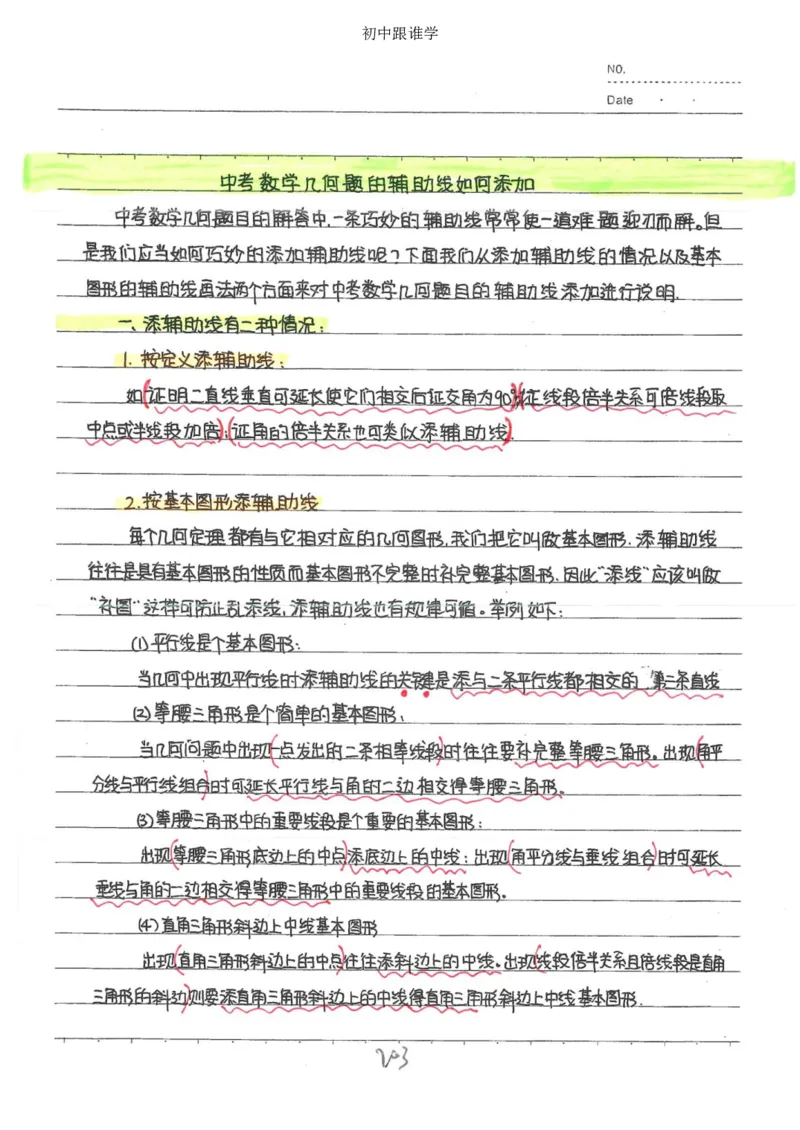 初中跟谁学
NO.
Date
中考数学几何题的辅助线如何添加
中考数学几何题目的解答中,一条巧妙的辅助线常常使一道难题迎刃而解。但
是我们应当如何巧妙的添加辅助线呢?下面我们从添加辅助线的情况以及基本
图形的辅助线画法两个方面来对中考数学几何题目的辅助线添加进行说明.
一、添辅助线有二种情况:
1. 按定义添辅助线:
如(证明二直线垂直可延长使它们相交后证交角为90°);(证线段倍半关系可倍线段取
中点或半线段加倍);(证角的倍半关系也可类似添辅助线).
2.按基本图形添辅助线
每个几何定理都有与它相对应的几何图形,我们把它叫做基本图形.添辅助线
往往是具有基本图形的性质而基本图形不完整时补完整基本图形.因此“添线”应该叫做
“补图”这样可防止乱添线,添辅助线也有规律可循。举例如下:
(1)平行线是个基本图形:
当几何中出现平行线时添辅助线的关键是添与二条平行线都相交的“第三条直线
(2)等腰三角形是个简单的基本图形:
当几何问题中出现(一点发出的二条相等线段)时往往要补完整等腰三角形。出现(角平
分线与平行线组合)时可延长平行线与角的二边相交得等腰三角形。
(3)等腰三角形中的重要线段是个重要的基本图形:
出现(等腰三角形底边上的中点)添底边上的中线;出现(角平分线与垂线组合)时可延长
垂线与角的二边相交得等腰三角形中的重要线段的基本图形。
(4)直角三角形斜边上中线基本图形
出现(直角三角形斜边上的中点)往往添斜边上的中线。出现(线段倍半关系且倍线段是直角
三角形的斜边)则要添直角三角形斜边上的中线得直角三角形斜边上中线基本图形.